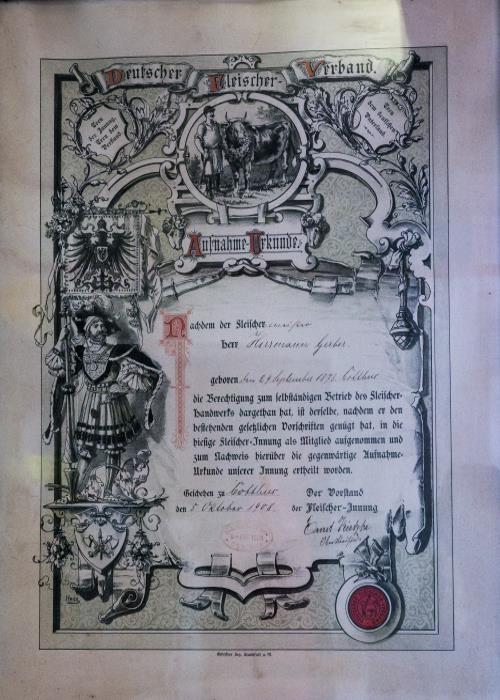 Deutscher Fleischer-Verband.
Treu
der Innung,
Treu dem
Verband
Treu
dem deutschen
Vaterland
Aufnahme-Urkunde.
Nachdem der Fleischermeister
Herr Herrmann Gerber.
geboren den 29. September 1873. Cottbus
die Berechtigung zum selbständigen Betrieb des Fleischer-
handwerks dargethan hat, ist derselbe, nachdem er den
bestehenden gesetzlichen Vorschriften genügt hat, in die
hiesige Fleischer-Innung als Mitglied aufgenommen und
zum Nachweis hierüber die gegenwärtige Aufnahme-
Urkunde unserer Innung ertheilt worden.
Geschehen zu Cottbus
den 5. Oktober 1908.
Der Vorstand
der Fleischer-Innung
Ernst
Obermeister